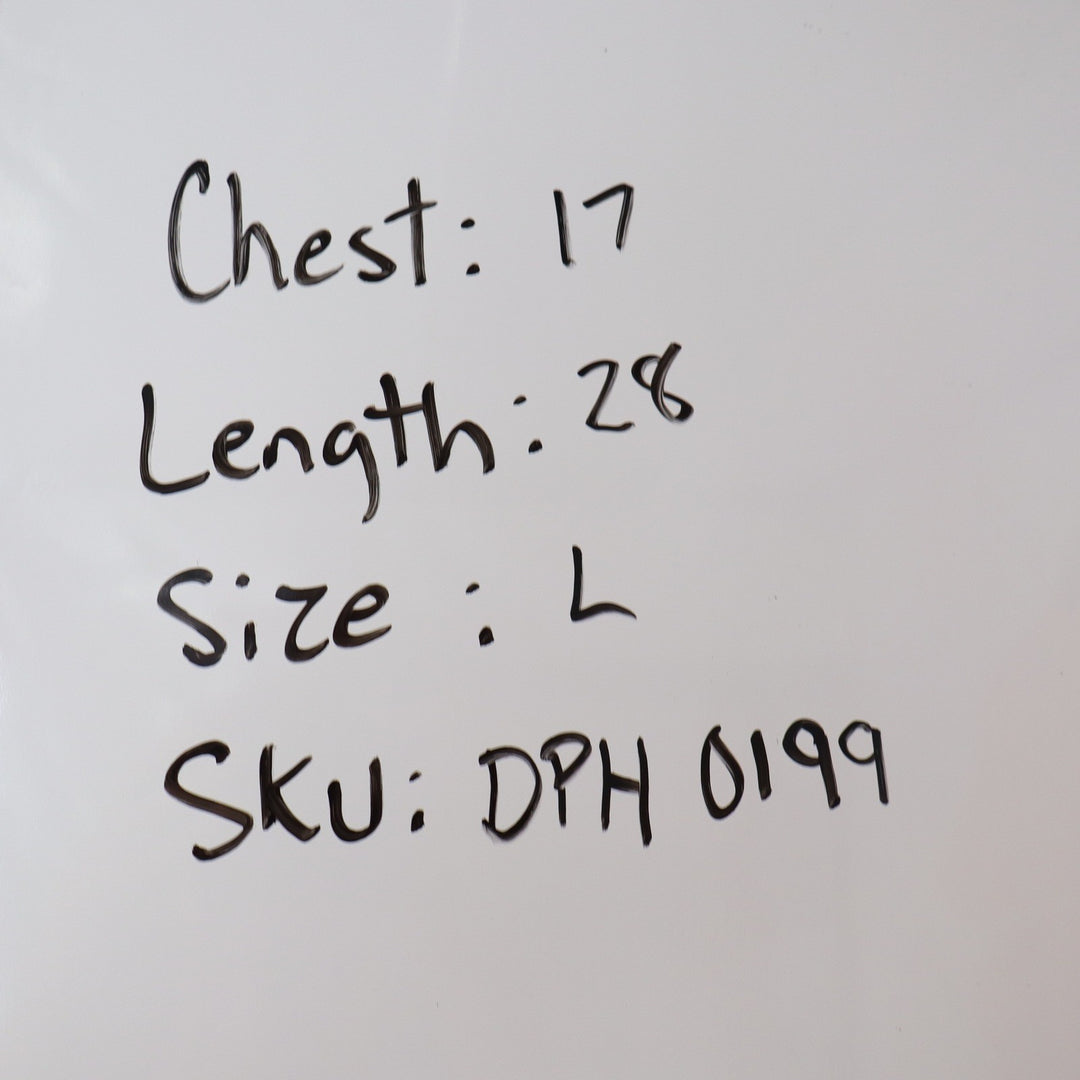 Chest: 17
Length: 28
Size : L
SKU: DPH 0199